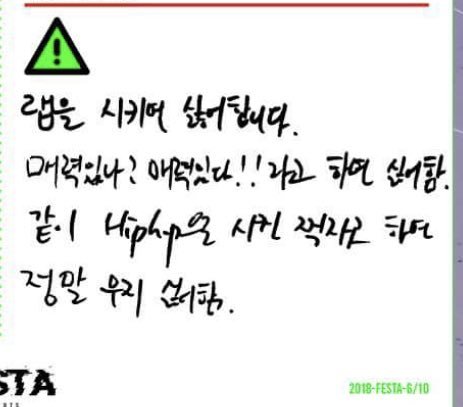 랩을 시키면 싫어합니다.
매력있나? 매력있다!! 라고 하면 싫어함.
같이 Hiphop을 찍자고 하면
정말 싫어함.
STA
2018-FESTA-6/10